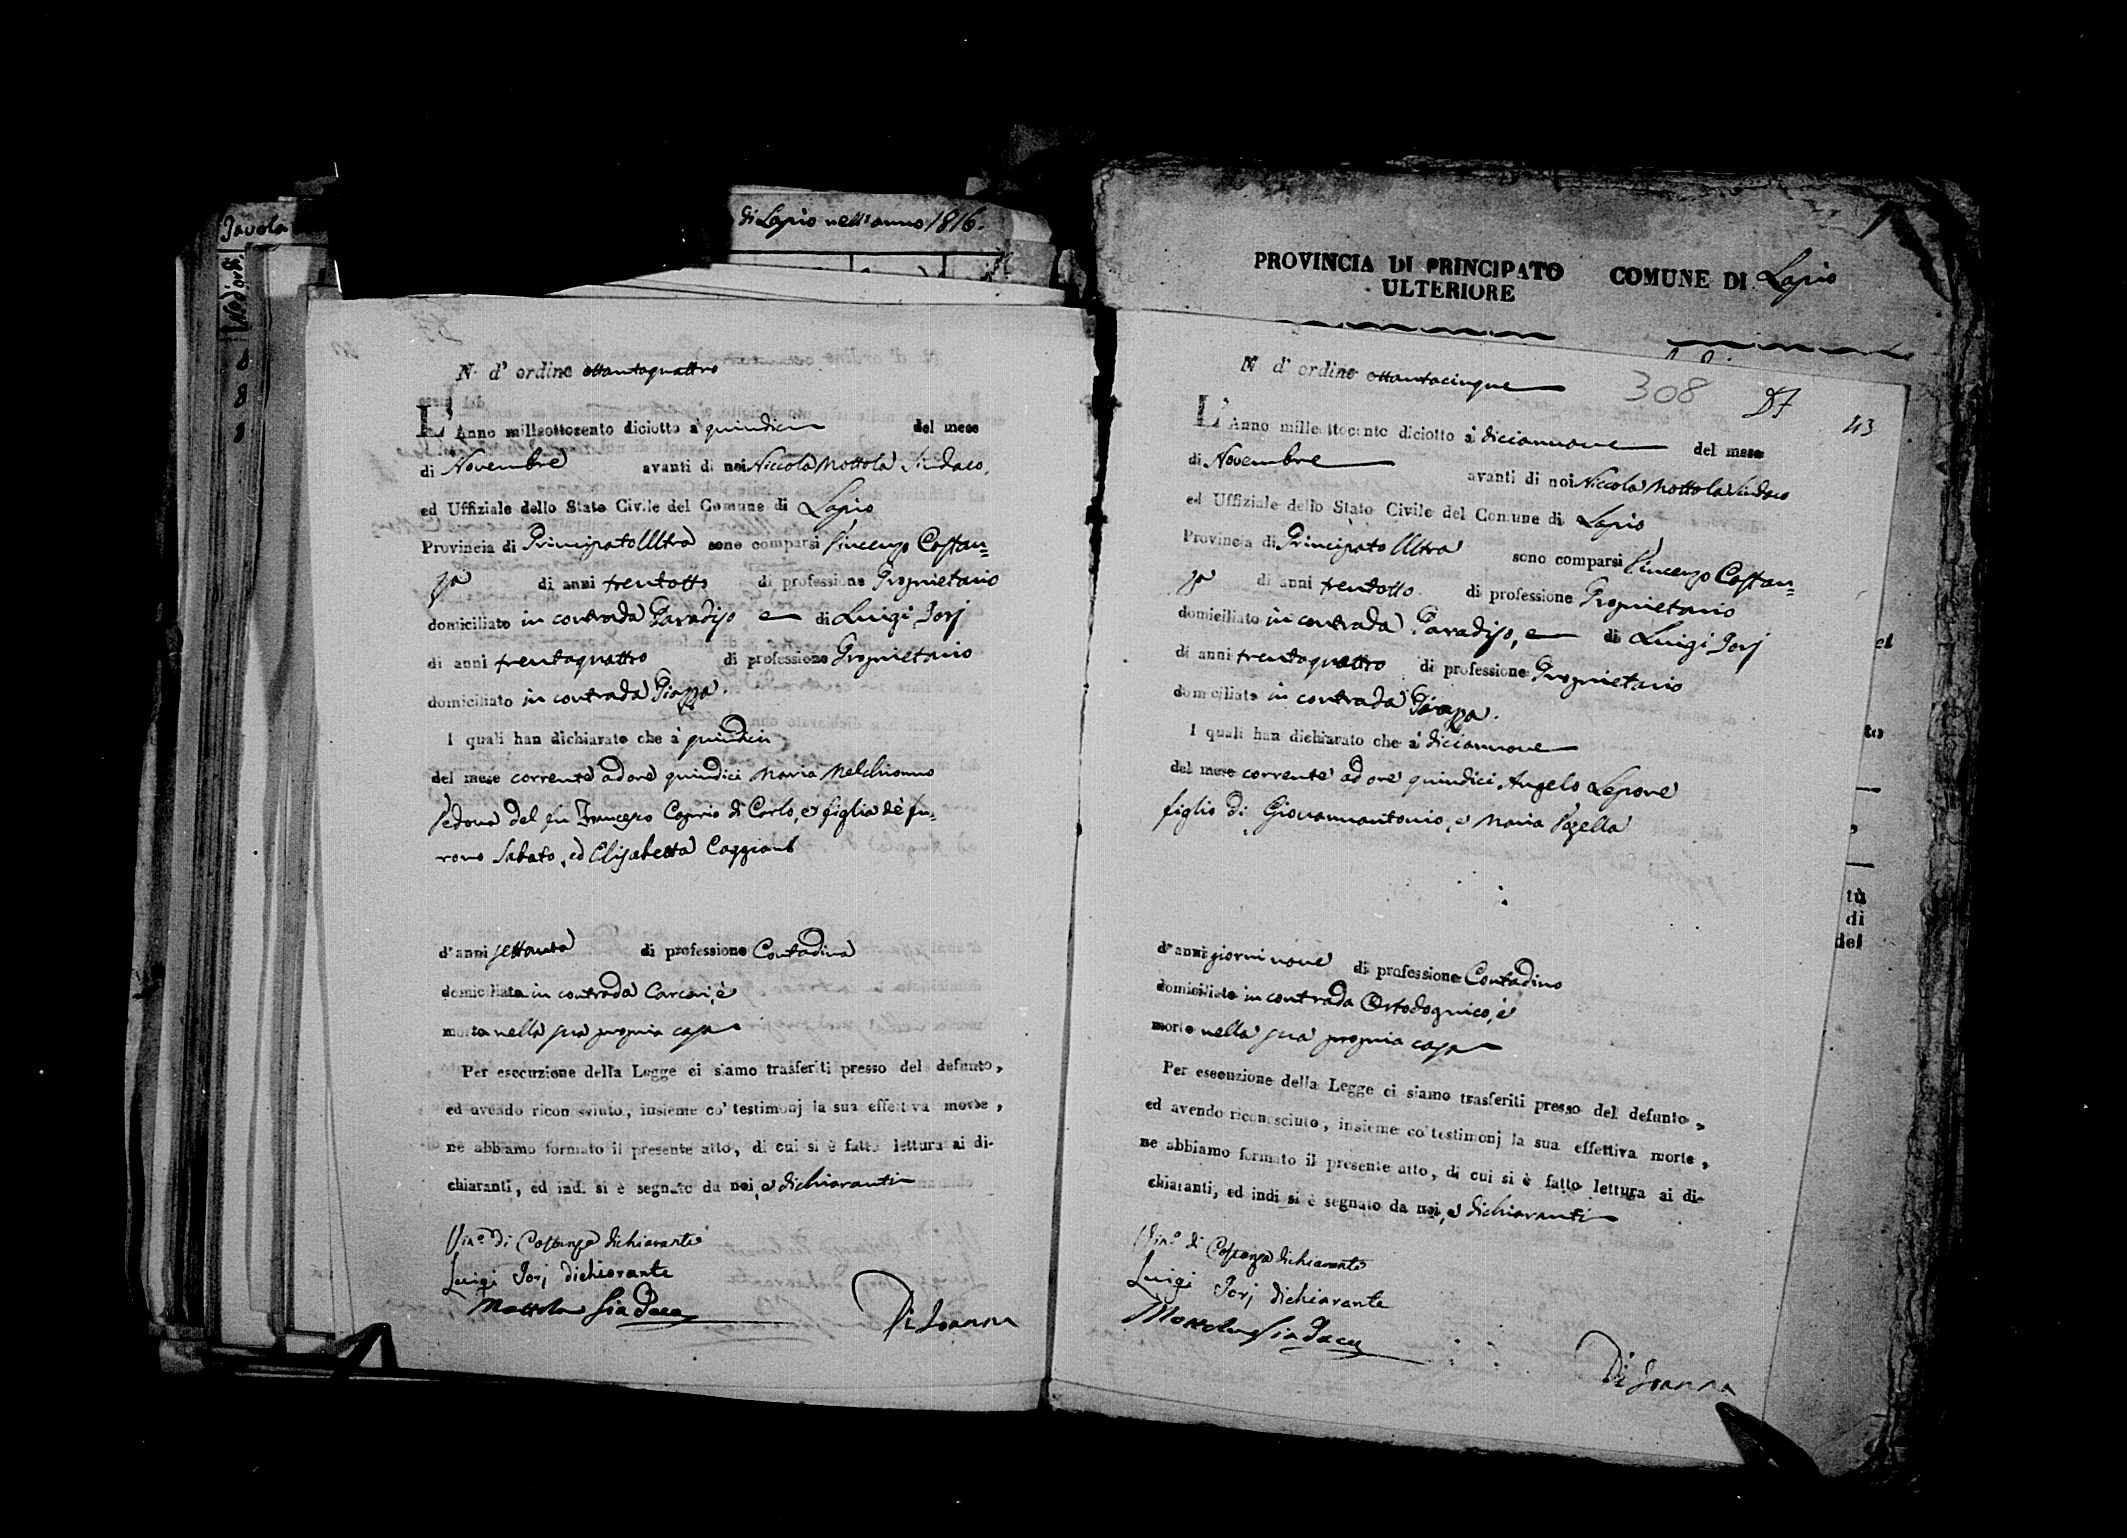 Tavola
di Lapio nell'anno 1816.
N. d' ordine ottantaquattro
L' Anno millsottocento diciotto a' quindici del mese
di Novembre avanti di noi Niccola Mottola Sindaco,
ed Uffiziale dello Stato Civile del Comune di Lapio
Provincia di Principato Ultra sono comparsi Vincenzo Costan=
za di anni trentotto di professione Proprietario
domiciliato in contrada Paradiso e di Luigi Jorj
di anni trentaquattro di professione Proprietario
domiciliato in contrada Piazza.
I quali han dichiarato che a' quindici
del mese corrente ad ore quindici Maria Melchionno
Vedova del fu Francesco Caprio di Carlo, e figlia de' fu=
rono Sabato, ed Elisabetta Caggiano
d' anni settanta di professione Contadina
domiciliata in contrada Carcari, è
morta nella sua propria casa
Per esecuzione della Legge ci siamo trasferiti presso del defunto,
ed avendo riconosciuto, insieme co' testimonj la sua effettiva morte,
ne abbiamo formato il presente atto, di cui si è fatto lettura ai di-
chiaranti, ed indi si è segnato da noi, e dichiaranti
Vin.o di Costanza dichiarante
Luigi Jorj dichiarante
Mottola Sindaco
Di Joanna
PROVINCIA DI PRINCIPATO COMUNE DI Lapio
ULTERIORE
N. d' ordine ottantacinque
308
43
L' Anno millesttocento diciotto a' diciannove del mese
di Novembre avanti di noi Niccola Mottola Sindaco
ed Uffiziale dello Stato Civile del Comune di Lapio
Provincia di Principato Ultra sono comparsi Vincenzo Costan=
za di anni trentotto di professione Proprietario
domiciliato in contrada Paradiso, e di Luigi Jorj
di anni trentaquattro di professione Proprietario
domiciliato in contrada Piazza.
I quali han dichiarato che a' diciannove
del mese corrente ad ore quindici Angelo Lepore
figlio di Giovannantonio, e Maria Vozella
d' anni giorni nove di professione Contadino
domiciliato in contrada Ortodognico, è
morto nella sua propria casa
Per esecuzione della Legge ci siamo trasferiti presso del defunto,
ed avendo riconosciuto, insieme co' testimonj la sua effettiva morte,
ne abbiamo formato il presente atto, di cui si è fatto lettura ai di-
chiaranti, ed indi si è segnato da noi, e dichiaranti
Vin.o di Costanza dichiarante
Luigi Jorj dichiarante
Mottola Sindaco
Di Joanna